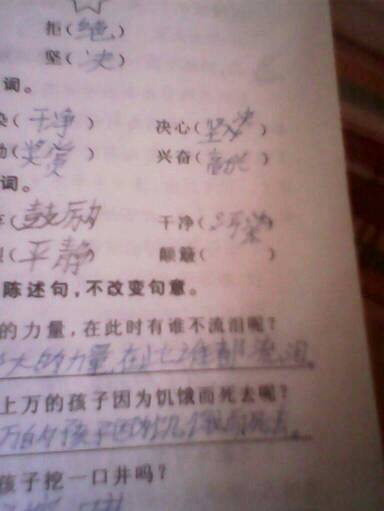 拒(绝)
坚(决)
词。
(干净) 决心(坚决)
(奖赏) 兴奋(高兴)
词。
(鼓励 干净(污染)
(平静) 颠簸( )
陈述句,不改变句意。
的力量,在此时有谁不流泪呢?
大的力量,在此 谁都 流泪。
上万的孩子因为饥饿而死去呢?
万的孩子因为饥饿而死去。
孩子挖一口井吗?